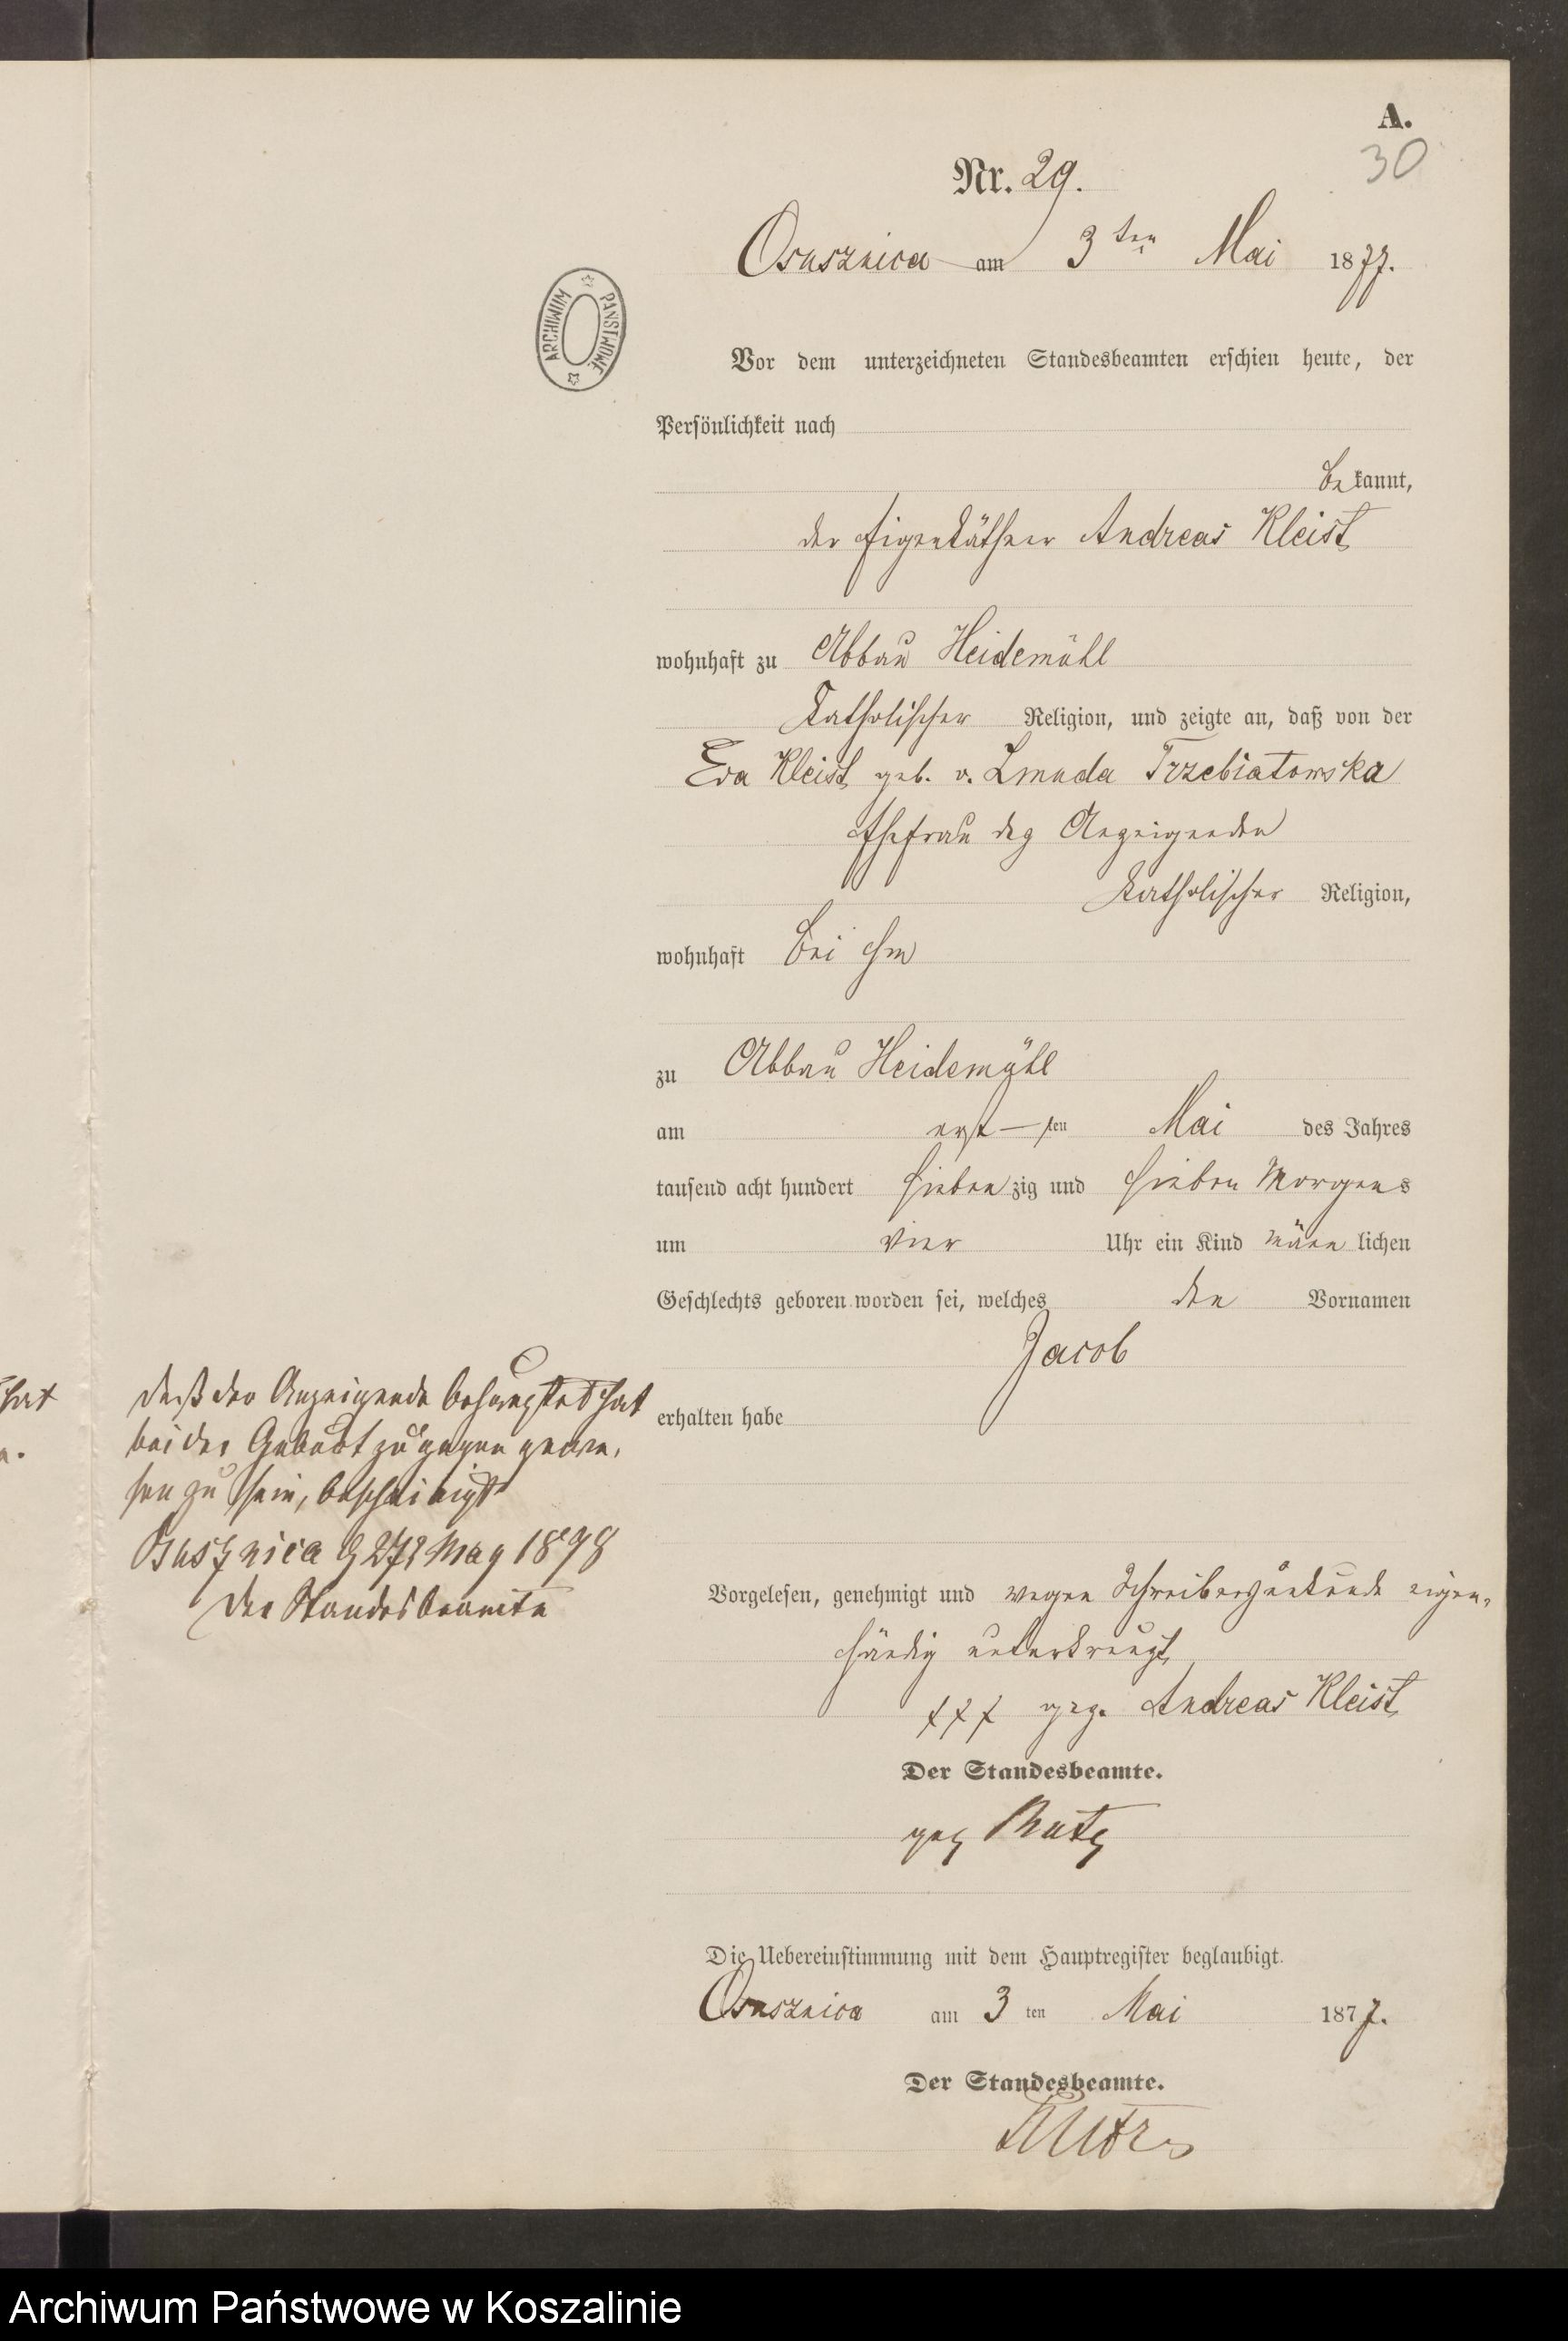 A.
30
Nr. 29.
Osusznica am 3ten Mai 1877.
ARCHIWUM PAŃSTWOWE
Vor dem unterzeichneten Standesbeamten erschien heute, der
Persönlichkeit nach
bekannt,
der Eigenkäthner Andreas Kleist
wohnhaft zu Abbau Heidemühl
katholischer Religion, und zeigte an, daß von der
Eva Kleist geb. v. Zmuda Trzebiatowska
Ehefrau des Anzeigenden
katholischer Religion,
wohnhaft bei ihm
zu Abbau Heidemühl
am erst—ten Mai des Jahres
tausend acht hundert siebenzig und sieben Morgens
um vier Uhr ein Kind männlichen
Geschlechts geboren worden sei, welches den Vornamen
Jacob
erhalten habe
hat
daß der Anzeigende behauptet hat
bei der Geburt zugegen gewe-
sen zu sein, bescheinigt
Osusznica May
Der Standesbeamte
Vorgelesen, genehmigt und wegen Schreibensunkunde eigen-
händig unterkreuzt
xxx gez. Andreas Kleist
Der Standesbeamte.
gez
Die Uebereinstimmung mit dem Hauptregister beglaubigt.
Osusznica am 3ten Mai 1877.
Der Standesbeamte.
Archiwum Państwowe w Koszalinie